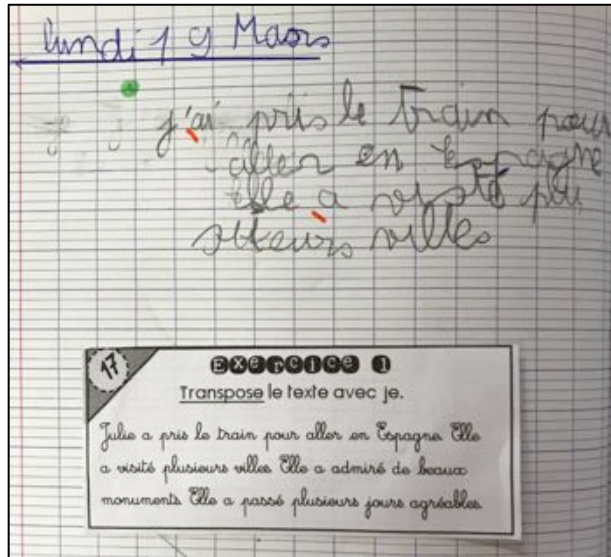 lundi 19 Mars
j'ai pris le train pour
aller en Espagne
elle a visté plu
sieurs villes
17
Exercice 1
Transpose le texte avec je.
Julie a pris le train pour aller en Espagne. Elle
a visité plusieurs villes. Elle a admiré de beaux
monuments. Elle a passé plusieurs jours agréables.